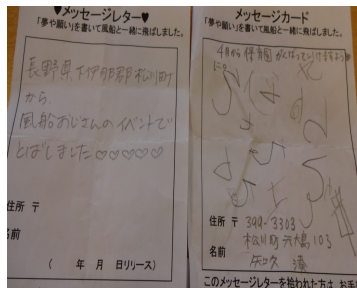 ♥メッセージレター♥
「夢や願い」を書いて風船と一緒に飛ばしました。
長野県下伊那郡松川町
から
風船おじさんのイベントで
とばしました♡♡♡♡♡
住所 〒
名前
( 年 月 日リリース)
メッセージカード
「夢や願い」を書いて風船と一緒に飛ばしました。
4月から保育園がんばっていけますように。
住所 〒 399-3303
松川町元大島103
名前
このメッセージレターを拾われた方は、お手